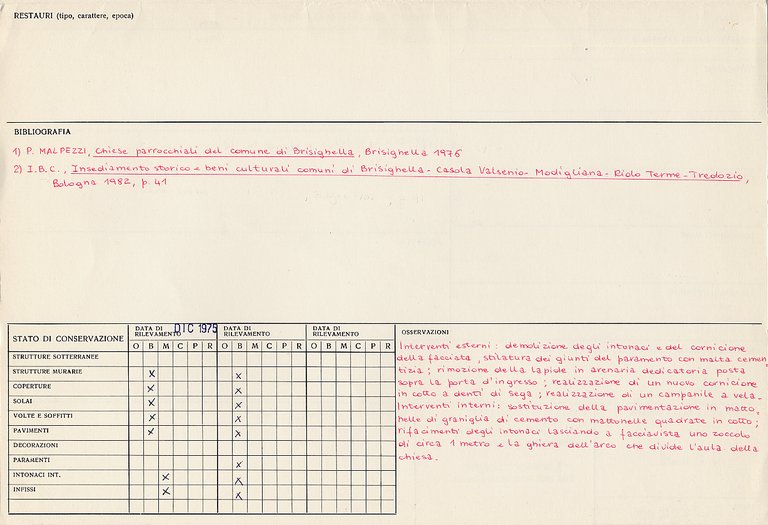 RESTAURI (tipo, carattere, epoca)
BIBLIOGRAFIA
1) P. MALPEZZI, Chiese parrocchiali del comune di Brisighella, Brisighella 1976
2) I.B.C., Insediamento storico e beni culturali comuni di Brisighella - Casola Valsenio - Modigliana - Riolo Terme - Tredozio,
Bologna 1982, p. 41
STATO DI CONSERVAZIONE
DATA DI RILEVAMENTO DIC 1975
DATA DI RILEVAMENTO
DATA DI RILEVAMENTO
O B M C P R O B M C P R O B M C P R
STRUTTURE SOTTERRANEE
STRUTTURE MURARIE X X
COPERTURE X X
SOLAI X X
VOLTE E SOFFITTI X X
PAVIMENTI X X
DECORAZIONI
PARAMENTI X
INTONACI INT. X X
INFISSI X X
OSSERVAZIONI
Interventi esterni: demolizione degli intonaci e del cornicione
della facciata, stilatura dei giunti del paramento con malta cemen
tizia; rimozione della lapide in arenaria dedicatoria posta
sopra la porta d'ingresso; realizzazione di un nuovo cornicione
in cotto a denti di sega; realizzazione di un campanile a vela.
Interventi interni: sostituzione della pavimentazione in matto_
nelle di graniglia di cemento con mattonelle quadrate in cotto;
rifacimenti degli intonaci lasciando a facciavista uno zoccolo
di circa 1 metro e la ghiera dell'arco che divide l'aula della
chiesa.